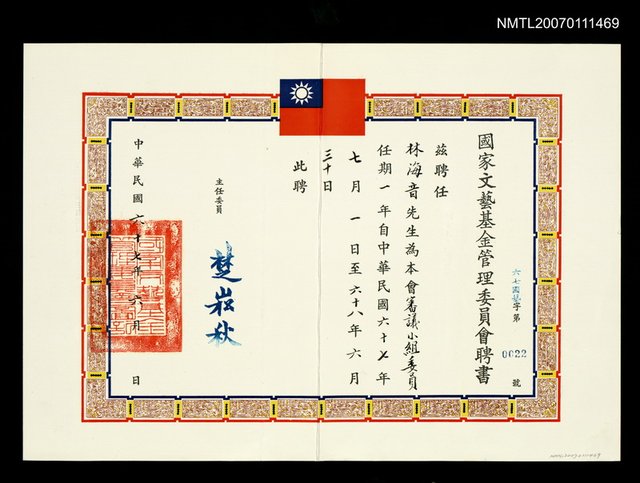 NMTL20070111469
國家文藝基金管理委員會聘書
六七國基字第0022號
茲聘任
林海音先生為本會審議小組委員
任期一年自中華民國六十七年
七月一日至六十八年六月
三十日
此聘
主任委員
楚崧秋
中華民國六十七年六月 日
NMTL20070111469